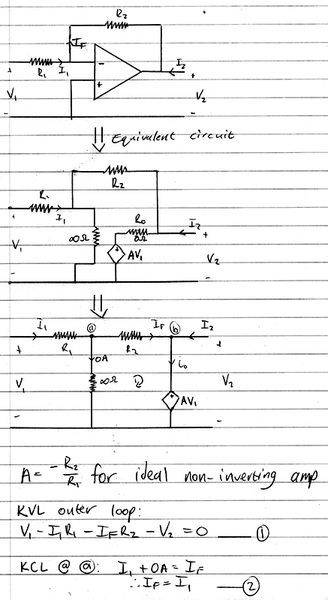 R2
IF
R1 I1 - I2
+ +
V1 V2
- -
⇓ Equivalent circuit
R2
R1 I1 R0 I2
∞Ω 0Ω +
V1 AV1 V2
- -
⇓
I1 ⓐ IF ⓑ I2
+ R1 0A R2 +
i0
V1 ∞Ω V2
AV1
- -
A = -R2/R1 for ideal non-inverting amp
KVL outer loop:
V1 - I1R1 - IFR2 - V2 = 0 — ①
KCL @ ⓐ: I1 + 0A = IF
∴ IF = I1 — ②